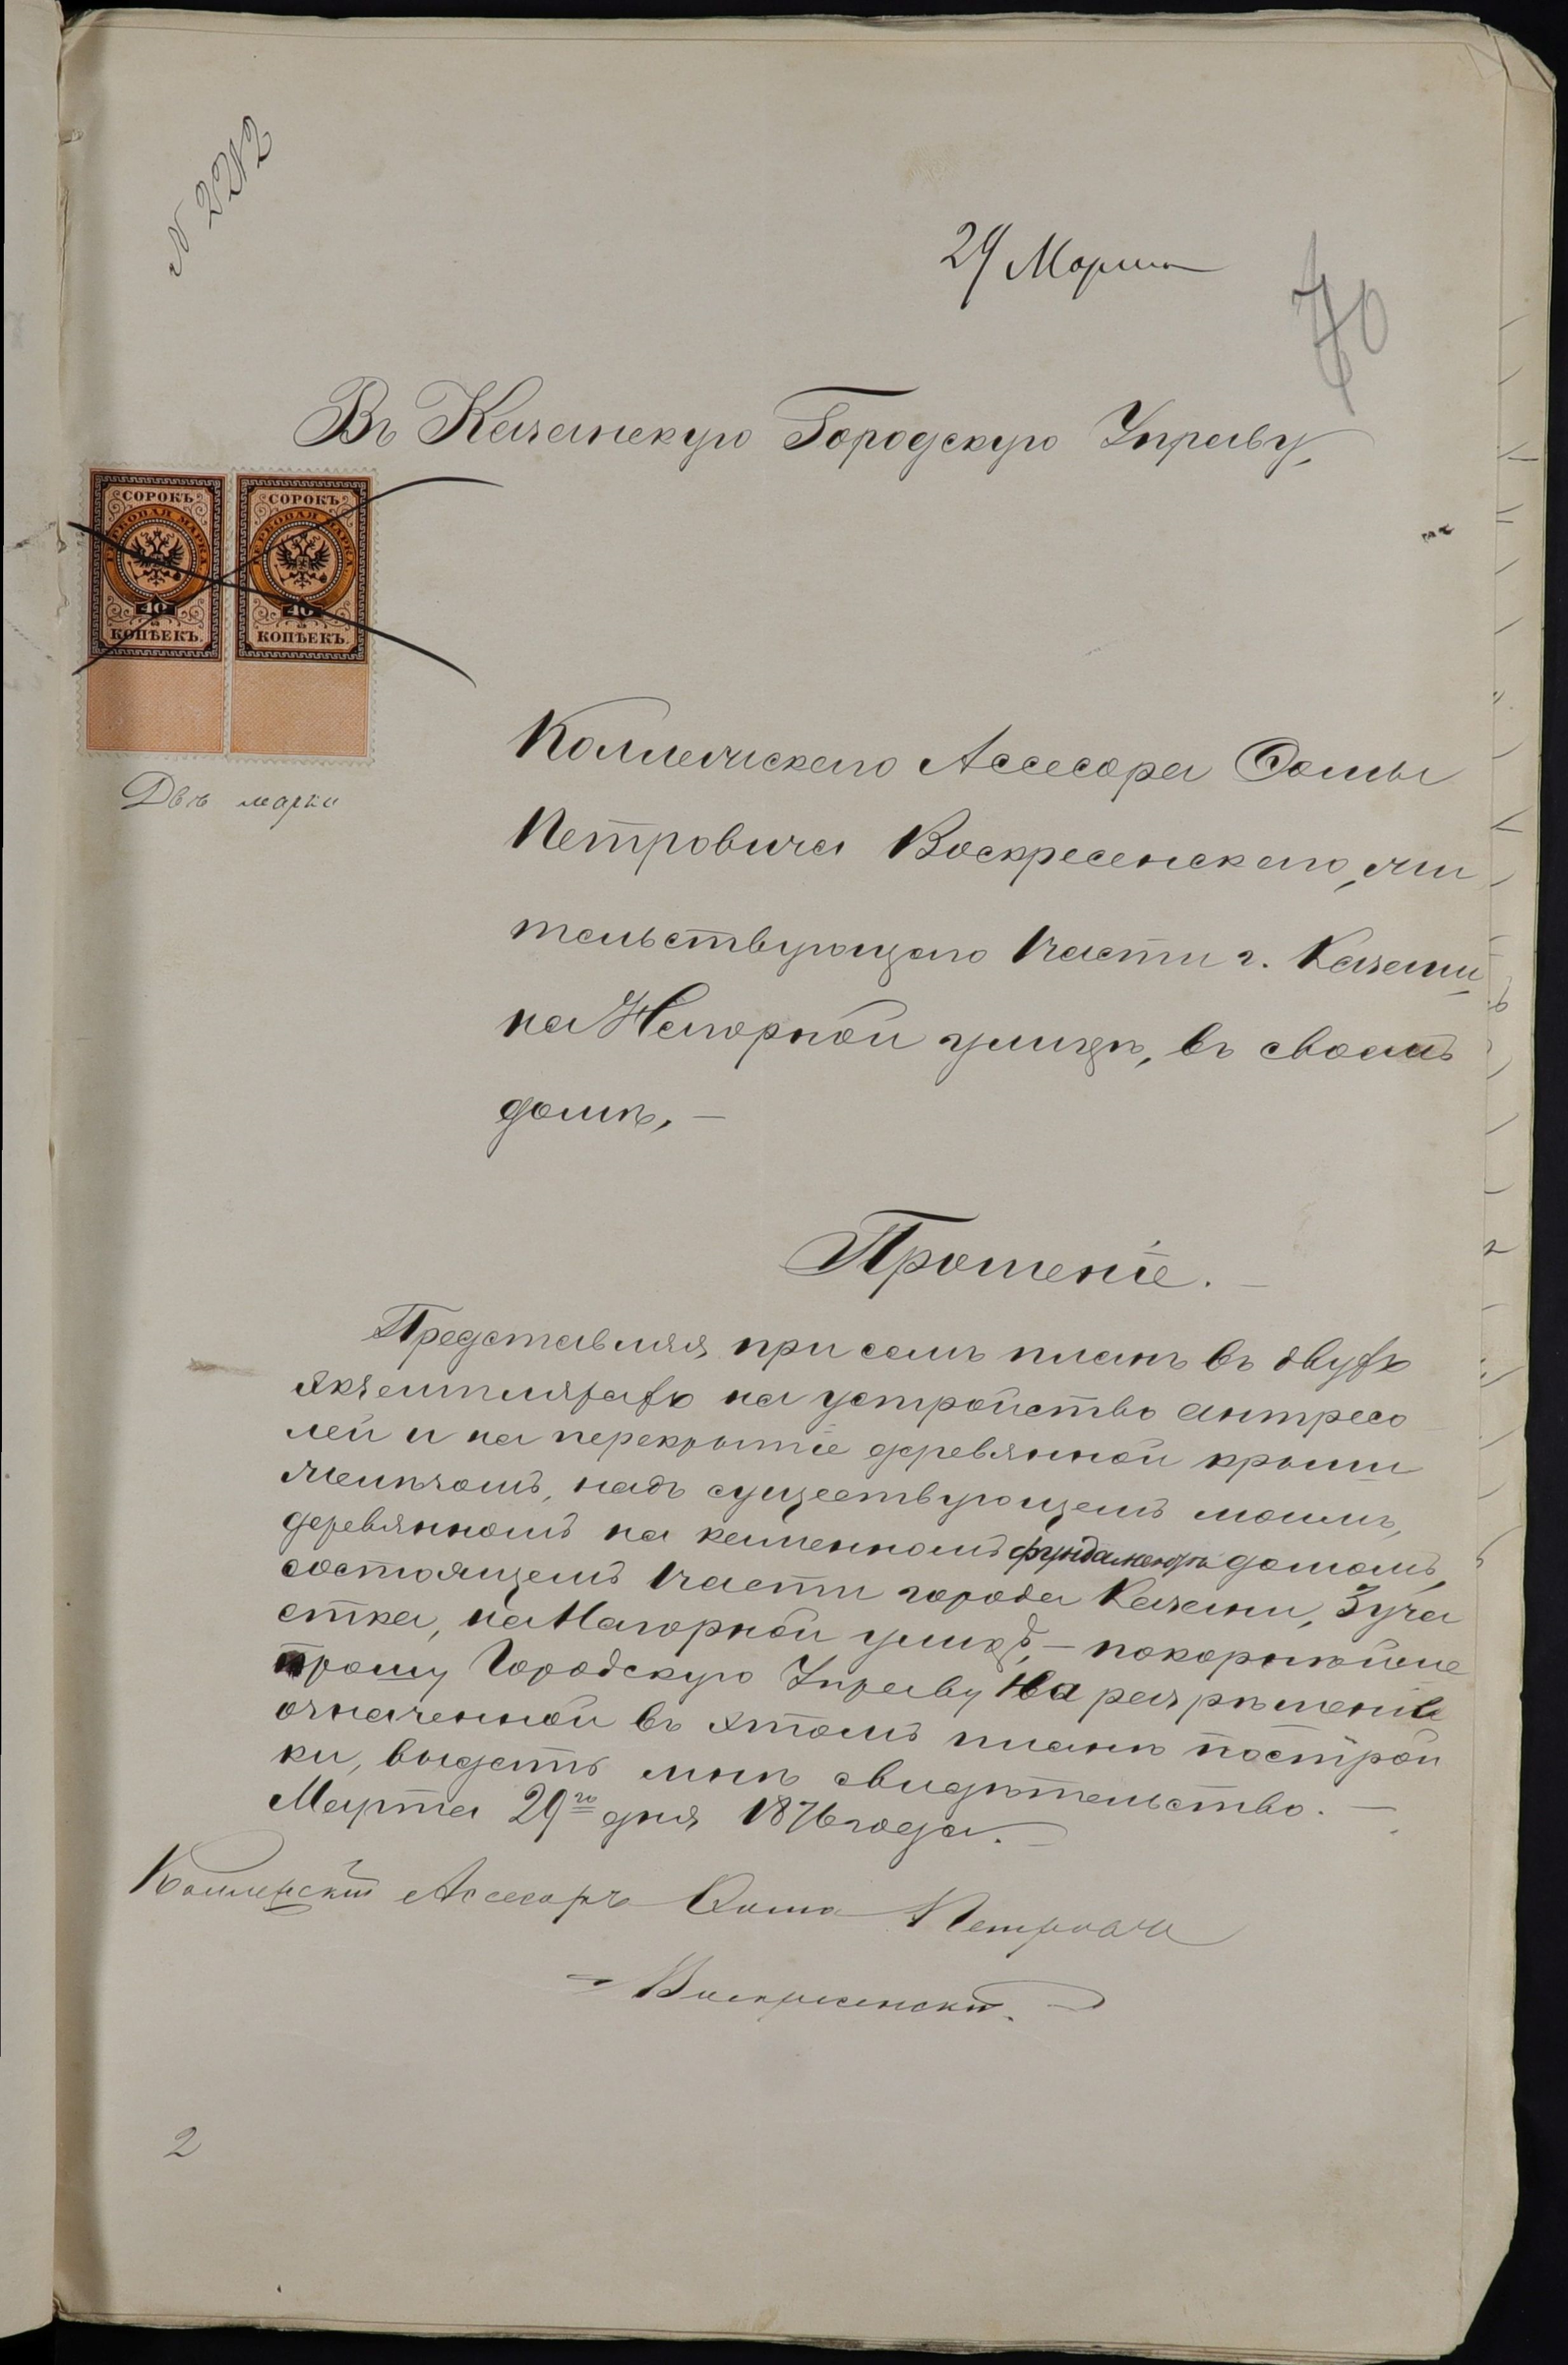 N 2212
29 Марта
70
Въ Казанскую Городскую Управу,
СОРОКЪ СОРОКЪ
ГЕРБОВАЯ МАРКА ГЕРБОВАЯ МАРКА
40 40
КОПѢЕКЪ. КОПѢЕКЪ.
Двѣ марки
Коллежскаго Ассесора Ѳомы
Петровича Воскресенскаго, жи
тельствующаго 1 части г. Казани
на Нагорной улицѣ, въ своемъ
домѣ, —
Прошеніе. —
Представляя, при семъ планъ въ двухъ
экземплярахъ на устройство антресо
лей и на перекрытіе деревянной крыши
желѣзомъ, надъ существующемъ моимъ,
деревянномъ на каменномъ фундаментѣ домомъ,
состоящемъ 1 части города Казани, 3 уча
стка, на Нагорной улицѣ, — покорнѣйше
прошу Городскую Управу на разрѣшеніе
означенной въ этомъ планѣ построй
ки, выдать мнѣ свидѣтельство. —
Марта 29го дня 1876 года. —
Коллежскій Ассесоръ Ѳома Петровичъ
Воскресенскій.
2